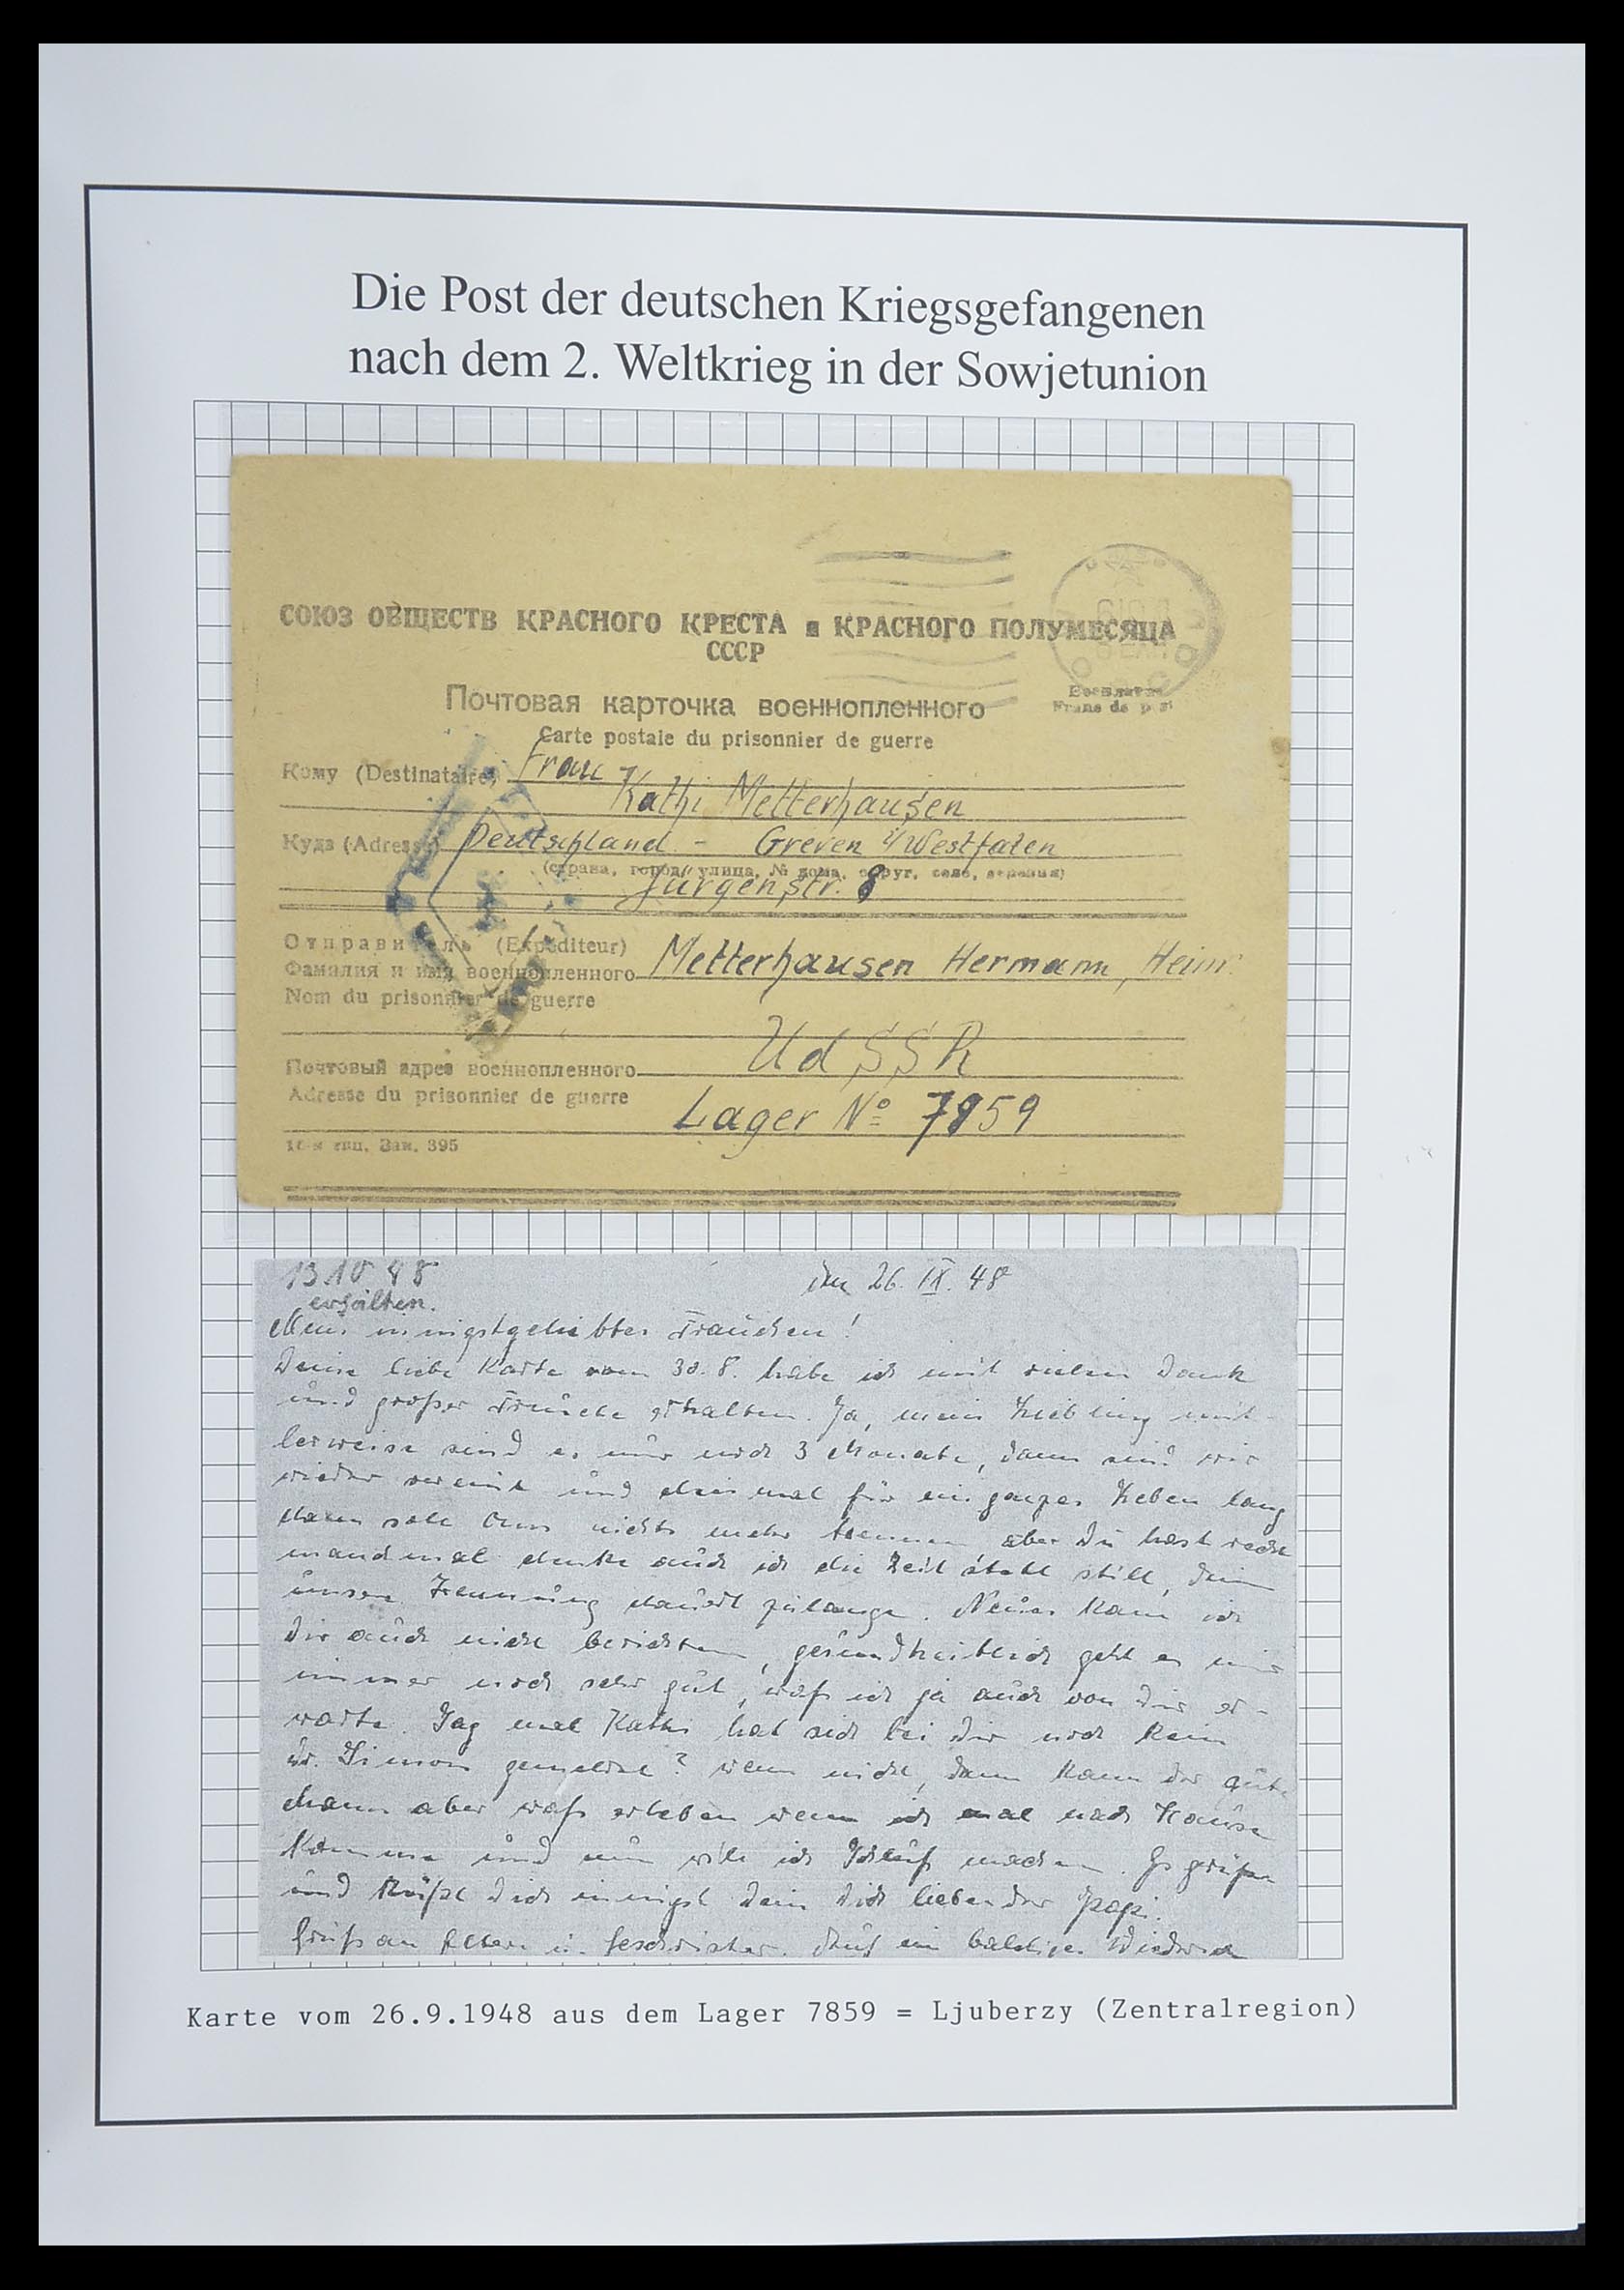 Die Post der deutschen Kriegsgefangenen
nach dem 2. Weltkrieg in der Sowjetunion
СОЮЗ ОБЩЕСТВ КРАСНОГО КРЕСТА и КРАСНОГО ПОЛУМЕСЯЦА
СССР
Почтовая карточка военнопленного
Бесплатно
Franc de port
Carte postale du prisonnier de guerre
Кому (Destinataire) Frau
Kathi Metterhausen
Куда (Adresse) Deutschland - Greven i/Westfalen
(страна, город, улица, № дома, округ, село, деревня)
Jürgenstr. 8
Отправитель (Expéditeur)
Фамилия и имя военнопленного Metterhausen Hermann, Heinr.
Nom du prisonnier de guerre
UdSSR
Почтовый адрес военнопленного
Adresse du prisonnier de guerre
Lager № 7859
16-я тип. Зак. 395
13 10 48 den 26. IX. 48
erhalten.
Mein innigstgeliebtes Frauchen!
Deine liebe Karte vom 30. 8. habe ich mit vielen Dank
und großer Freude erhalten. Ja, mein Liebling mit-
lerweise sind es nur noch 3 Monate, dann sind wir
wieder vereint und diesmal für ein ganzes Leben lang
dann soll uns nichts mehr trennen, aber Du hast recht
manchmal denke auch ich die Zeit steht still, denn
unsere Trennung dauert zulange. Neues kann ich
Dir auch nicht berichten, gesundheitlich geht es mir
immer noch sehr gut, waß ich ja auch von Dir er-
warte. Sag mal Kathi hat sich bei Dir noch kein
Dr. Simon gemeldet? wenn nicht, dann kann der gute
Mann aber waß erleben wenn ich mal nach Hause
komme und nun will ich Schluß machen. Es grüßen
und küßt Dich innigst Dein Dich liebender Papi.
Gruß an Eltern u. Geschwister. Auf ein baldiges Wiedersehn
Karte vom 26.9.1948 aus dem Lager 7859 = Ljuberzy (Zentralregion)